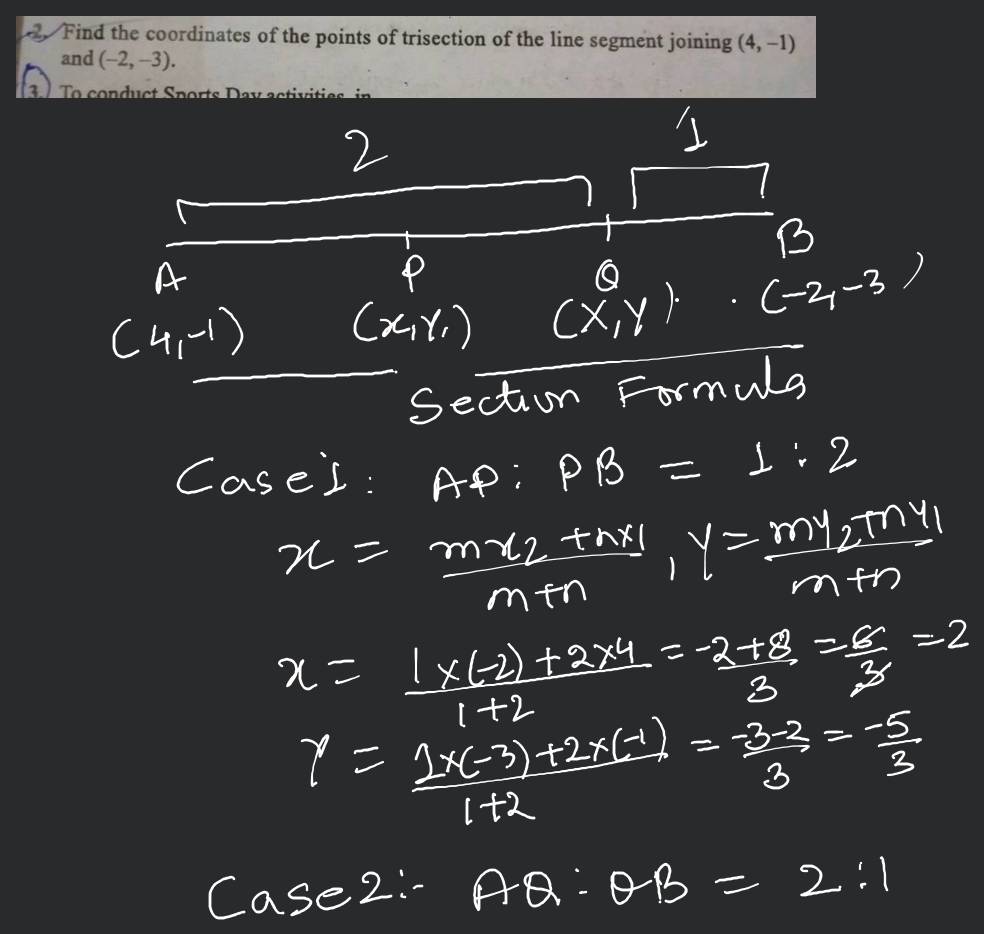 2. Find the coordinates of the points of trisection of the line segment joining (4, –1)
and (–2, –3).
3. To conduct Sports Day activities, in
2 1
A P Q B
(4,-1) (x,y,) (X,Y) (-2,-3)
Section Formula
Case1: AP: PB = 1:2
x = mx2+nx1/m+n , Y = my2+ny1/m+n
x = 1x(-2)+2x4/1+2 = -2+8/3 = 6/3 = 2
Y = 1x(-3)+2x(-1)/1+2 = -3-2/3 = -5/3
Case2:- AQ:QB = 2:1